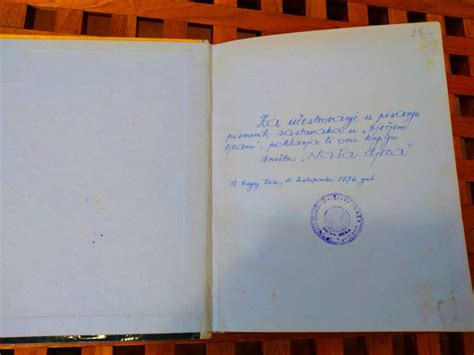 25,-
Za učestvovanje u pisanju
pismenih sastavaka u „Dječjem
tjednu", poklanja ti ovu knjigu
društvo „Naša djeca"
U 11. listopada 1976. god.